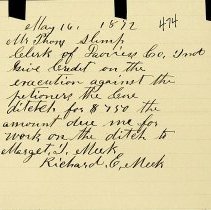 May 16, 1892 474
Mr Thony Stimp
Clerk of Daviess Co, Ind
Give Credit on the
execution against the
petioners the Line
ditch for $7.50 the
amount due me for
work on the ditch to
Marget, J. Meek
Richard E, Meek